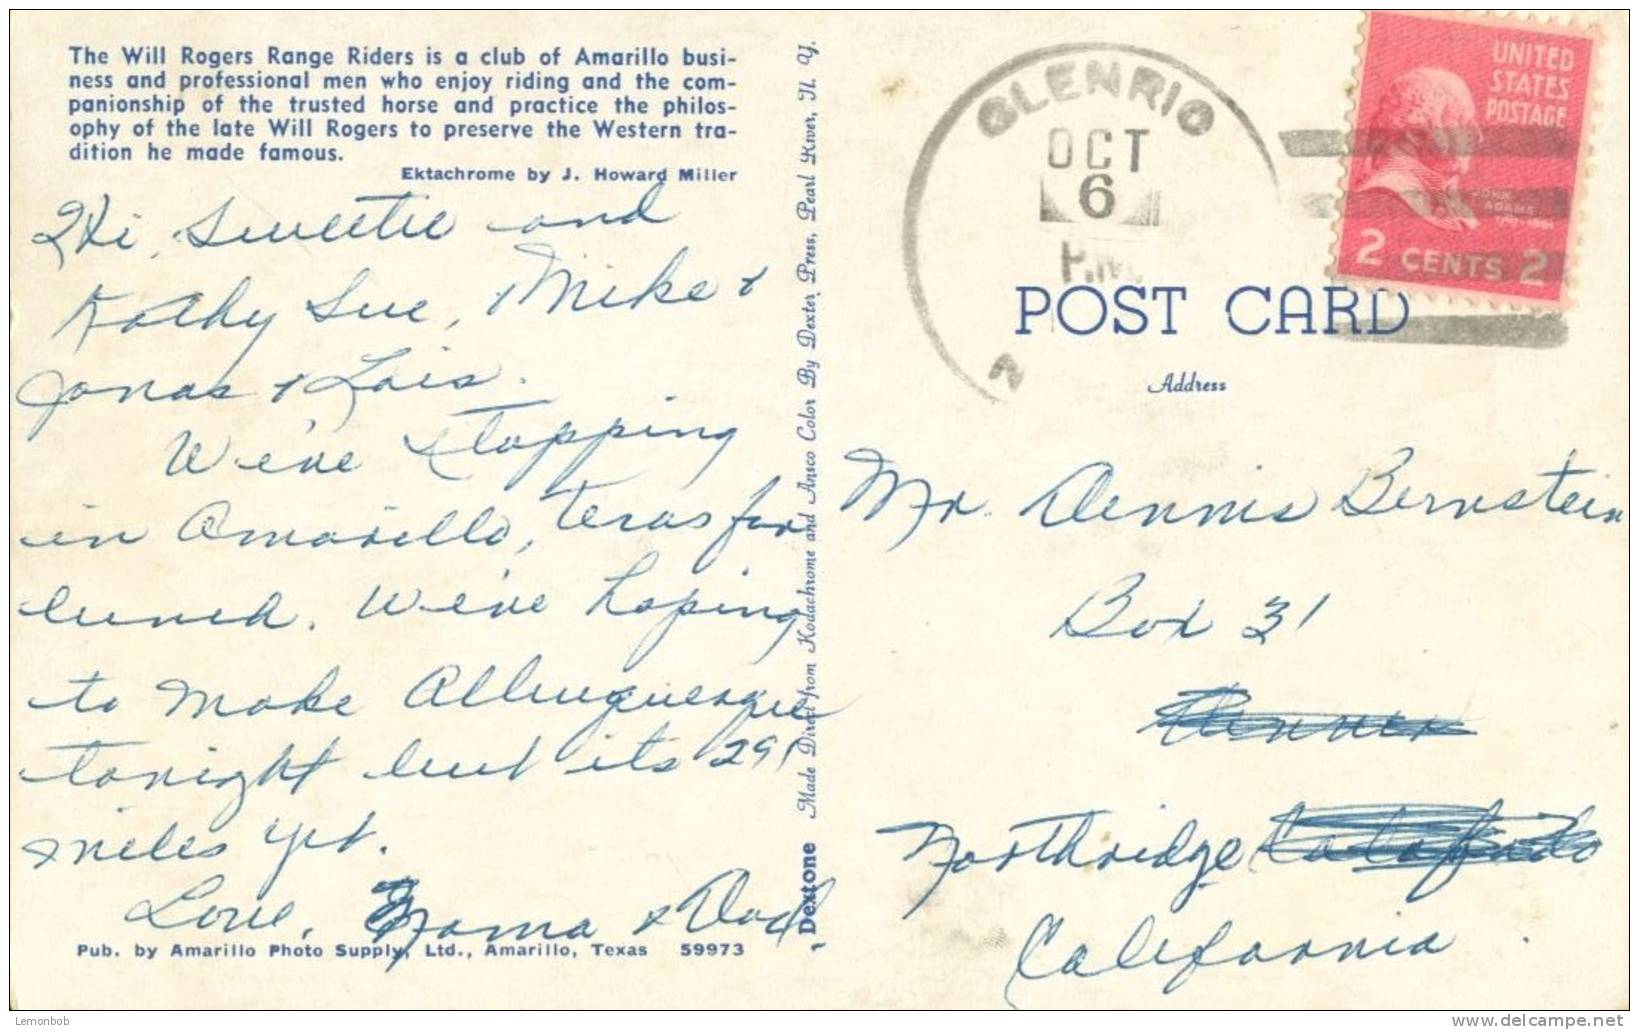 The Will Rogers Range Riders is a club of Amarillo busi-
ness and professional men who enjoy riding and the com-
panionship of the trusted horse and practice the philos-
ophy of the late Will Rogers to preserve the Western tra-
dition he made famous.
Ektachrome by J. Howard Miller
Hi, Sweetie and
Kathy Sue, & Mike &
Jonas & Lois.
We're stopping
in Amarillo, Texas for
lunch. We're hoping
to make Albuquerque
tonight but its 291
miles yet.
Love, Noma & Dad
Pub. by Amarillo Photo Supply, Ltd., Amarillo, Texas 59973
Dextone Made Direct from Kodachrome and Ansco Color By Dexter Press, Pearl River, N. Y.
GLENRIO
OCT
6
P.M.
N
UNITED
STATES
POSTAGE
JOHN
ADAMS
1797-1801
2 CENTS 2
POST CARD
Address
Mr. Dennis Bernstein
Box 31
Northridge
California
Lemonbob
delcampe.net